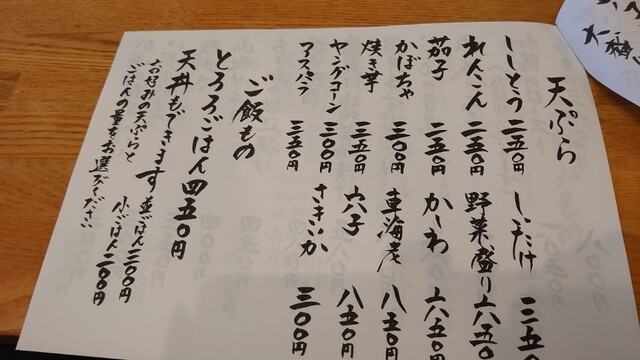 天ぷら
ししとう 二五〇円
しいたけ 三五〇
れんこん 二五〇円
野菜盛り 六五〇
茄子 二五〇円
かしわ 六五〇円
かぼちゃ 三〇〇円
車海老 八五〇円
焼き芋 三五〇円
穴子 八五〇円
ヤングコーン 三〇〇円
さきいか 三〇〇円
アスパラ 三五〇円
ご飯もの
とろろごはん 四五〇円
天丼もできます
お好みの天ぷらと
ごはんの量をお選びください
並ごはん 三〇〇円
小ごはん 二〇〇円